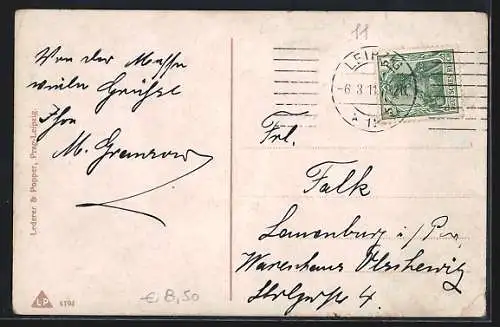 Von der Messe
viele Grüsse
Ihr
M. Gremzow
Lederer & Popper, Prag-Leipzig.
LP
€ 8,50
11
LEIPZIG
-6.3.11
DEUTSCHES REICH
Frl.
Falk
Lauenburg i/Pom
Warenhaus
4.